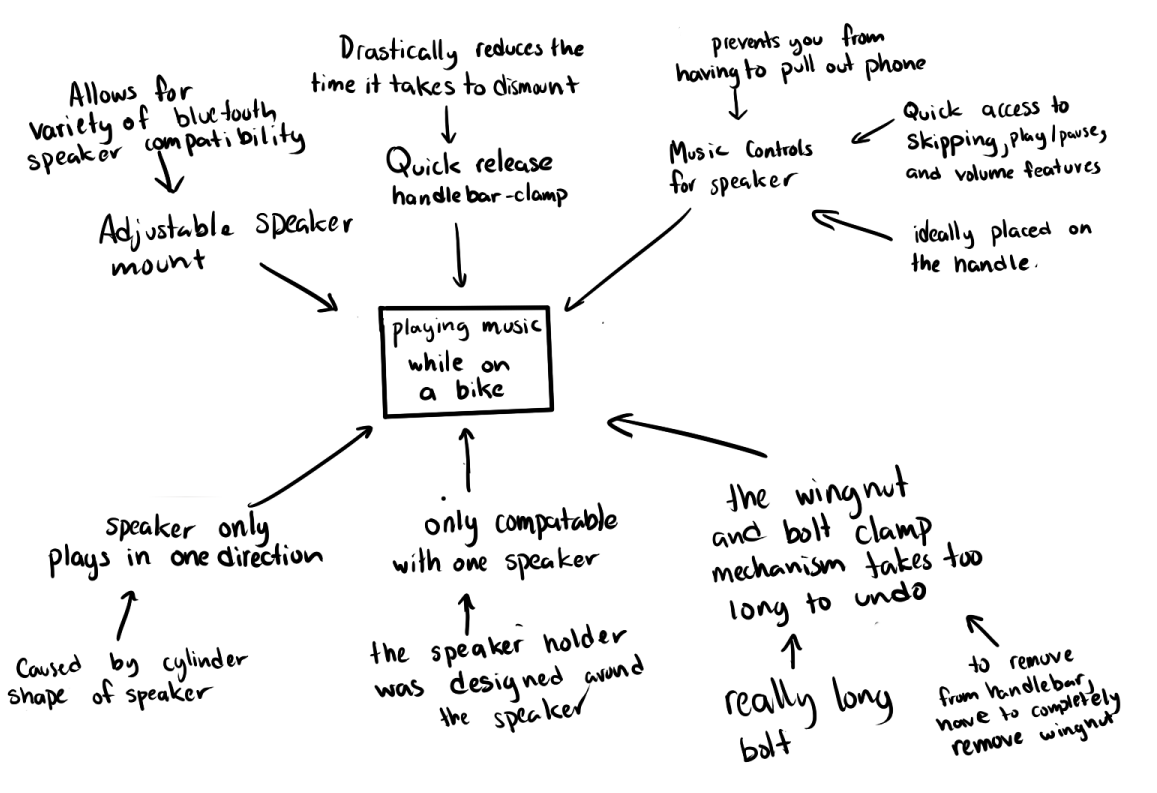 Allows for
variety of bluetooth
speaker compatibility
Adjustable speaker
mount
Drastically reduces the
time it takes to dismount
Quick release
handlebar-clamp
prevents you from
having to pull out phone
Music Controls
for speaker
Quick access to
skipping, play/pause,
and volume features
ideally placed on
the handle.
playing music
while on
a bike
speaker only
plays in one direction
Caused by cylinder
shape of speaker
only compatable
with one speaker
the speaker holder
was designed around
the speaker
the wingnut
and bolt clamp
mechanism takes too
long to undo
really long
bolt
to remove
from handlebar,
have to completely
remove wingnut